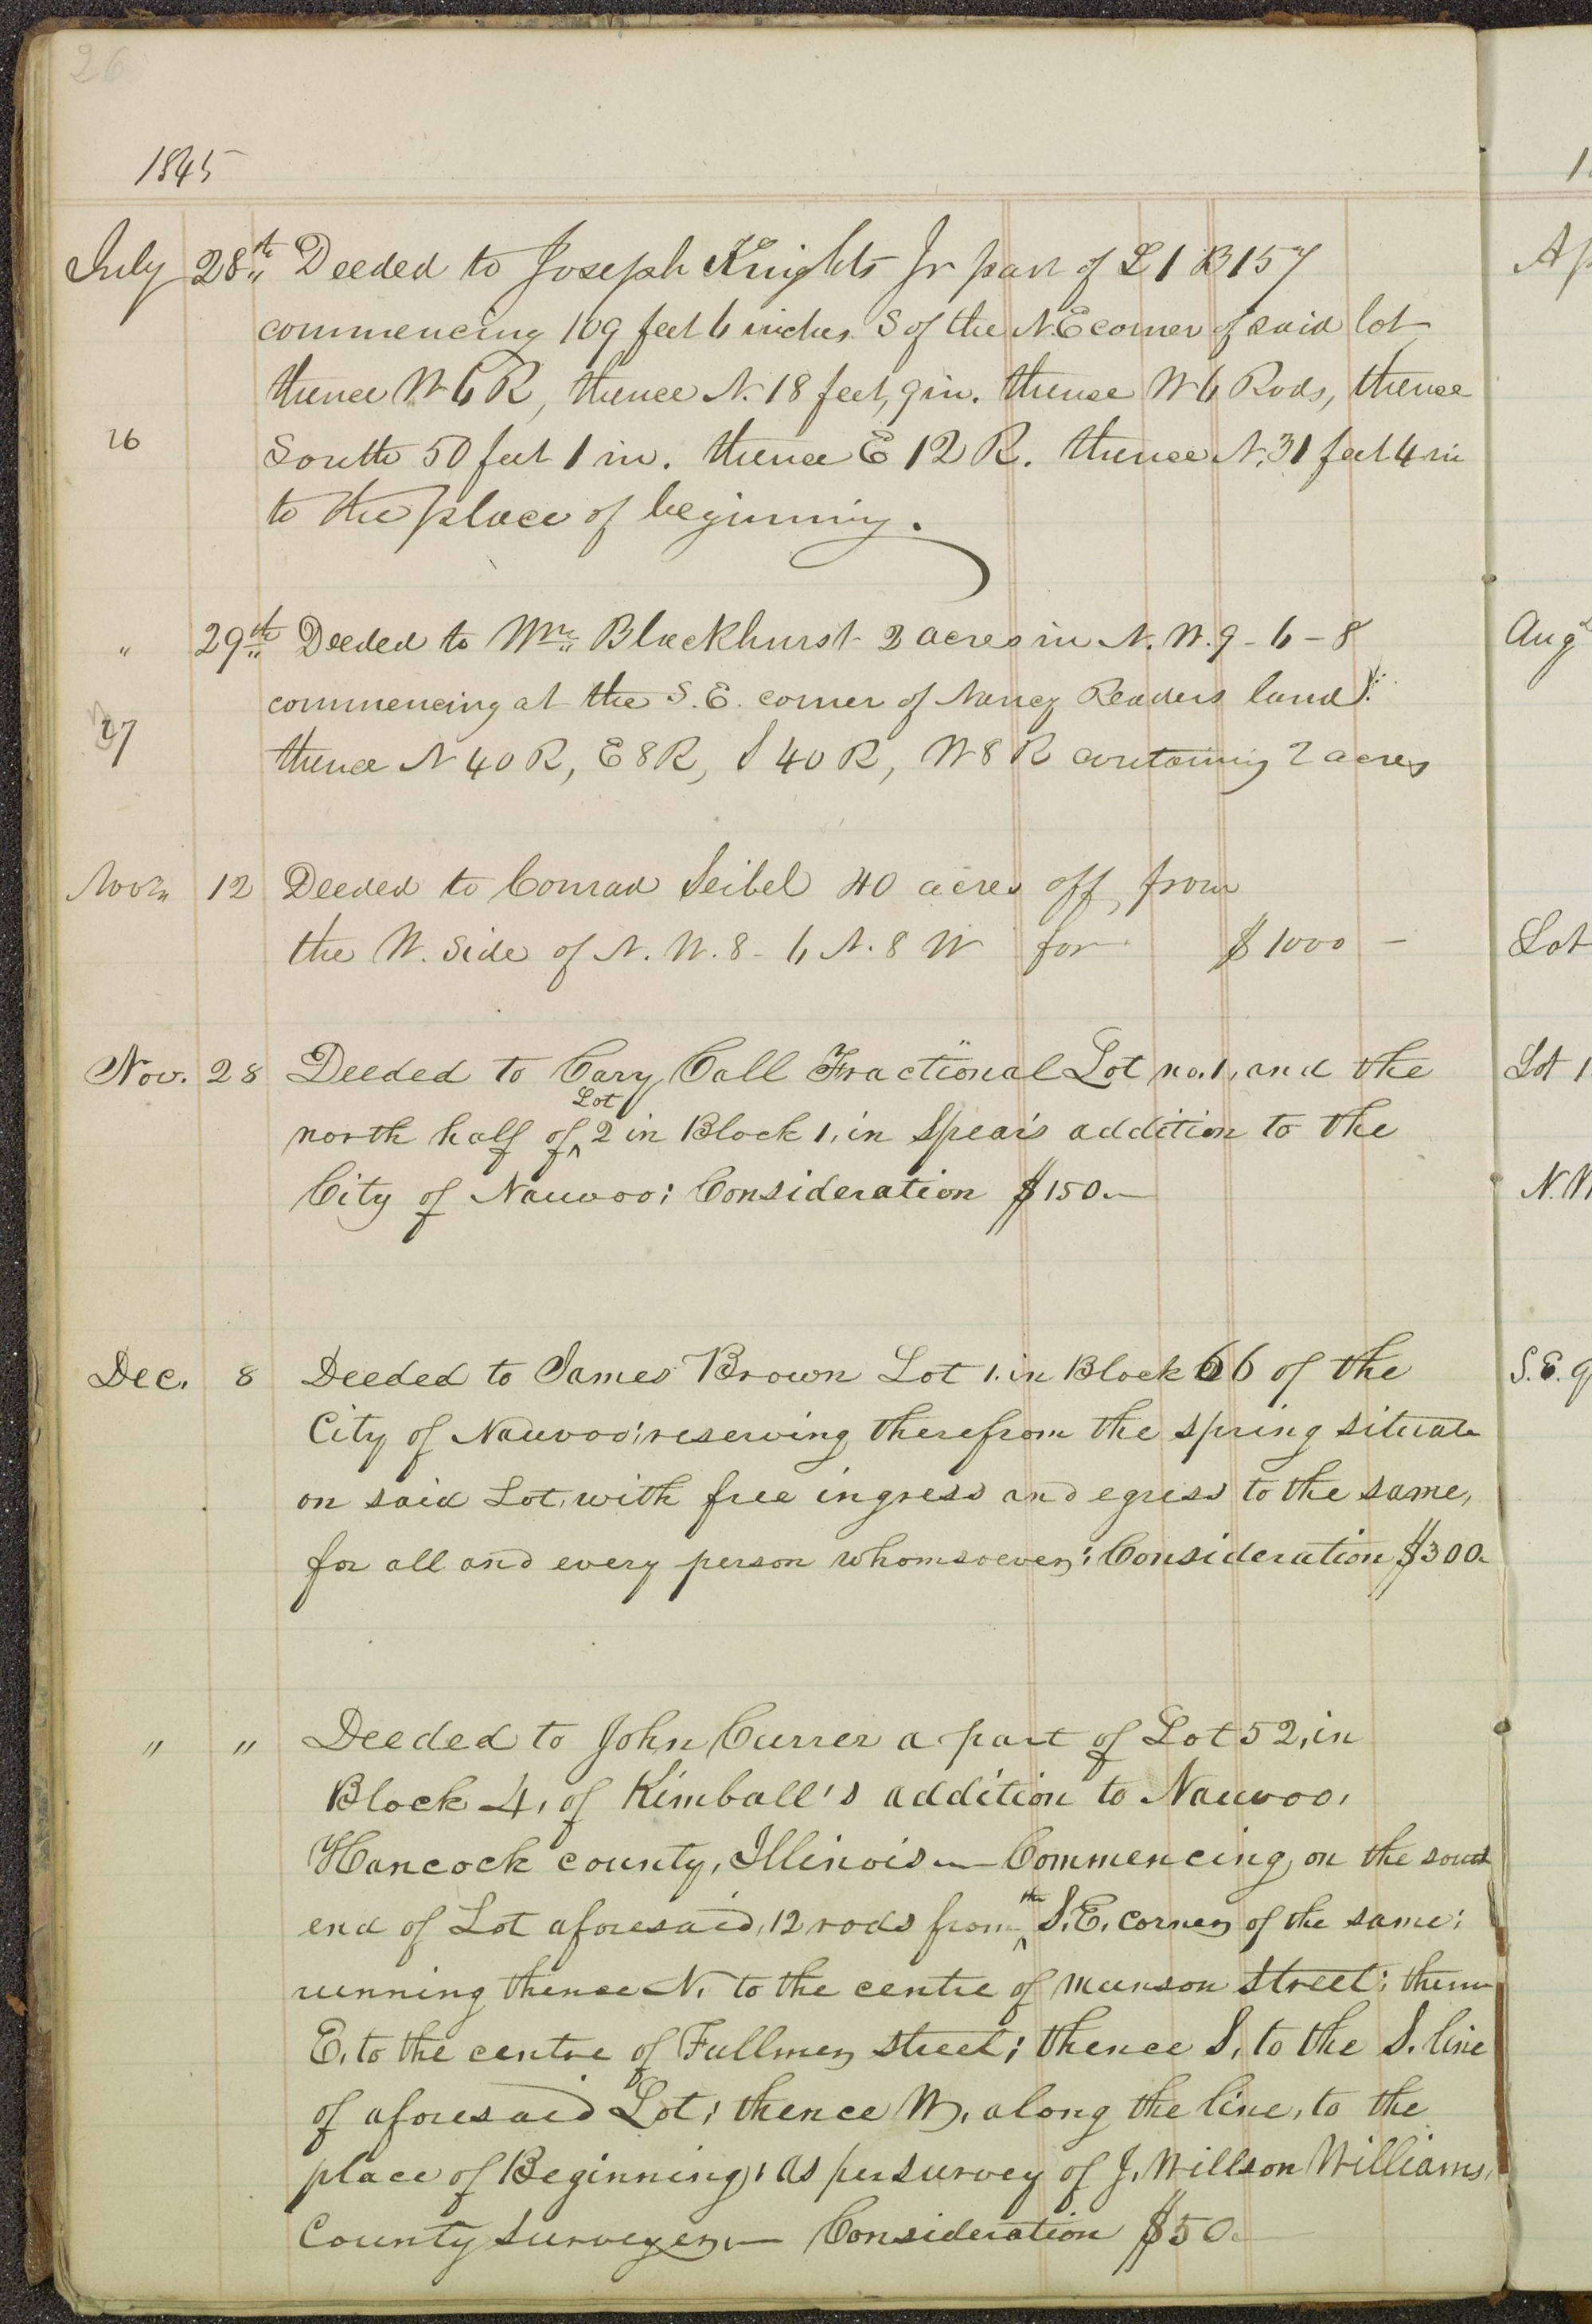 26
1845
July 28th Deeded to Joseph Knights Jr part of L 1 B 157
commencing 109 feet 6 inches S of the N.E corner of said lot
thence W 6 R, thence N. 18 feet, 9 in. thense W 6 Rods, thense
26 South 50 feet 1 in. thence E 12 R. thence N. 31 feet 4 in
to the place of beginning.
" 29th Deeded to Wm Blackhurst 2 acres in N. W. 9 - 6 - 8
commencing at the S. E. corner of Nancy Readers land
27 thence N 40 R, E 8 R, S 40 R, W 8 R containing 2 acres
12 Deeded to Conrad Seibel 40 acres off from
the W. Side of N. W. 8 - 6 N. 8 W for $ 1000 -
Nov. 28 Deeded to Cary Call Fractional Lot no. 1, and the
north half of Lot 2 in Block 1, in Spears addition to the
City of Nauvoo; Consideration $150.—
Dec. 8 Deeded to James Brown Lot 1. in Block 66 of the
City of Nauvoo; reserving therefrom the spring situate
on said Lot, with free ingress and egress to the same,
for all and every person whomsoever; Consideration $300.
" " Deeded to John Currer a part of Lot 52, in
Block 4, of Kimball's addition to Nauvoo,
Hancock county, Illinois — Commencing on the south
end of Lot aforesaid, 12 rods from the S. E. corner of the same;
running thence N. to the centre of Munson Street; thence
E. to the centre of Fullmer Street; thence S. to the S. line
of aforesaid Lot; thence W. along the line, to the
place of Beginning; as per survey of J. Willson Williams,
County Surveyer. — Consideration $50.
Aug
Lot
Lot 1
S. E. q